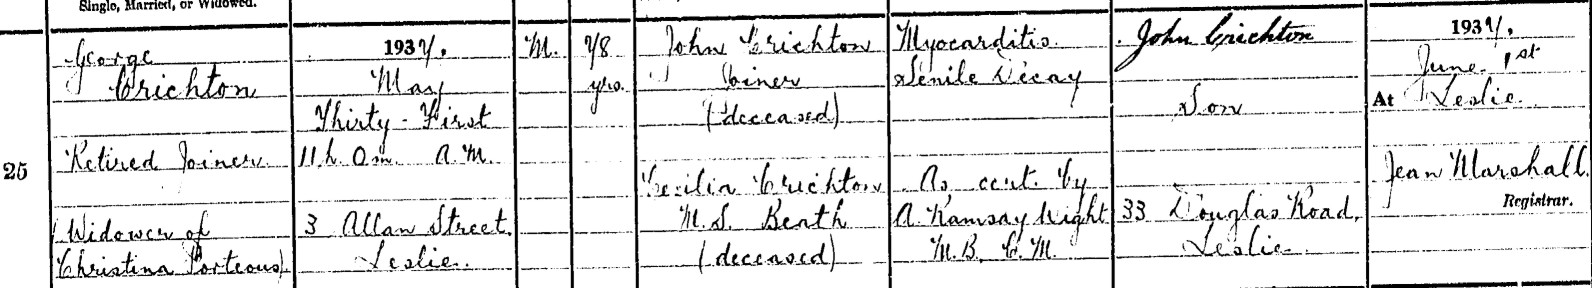 Single, Married, or Widowed.
25
George
Crichton
Retired Joiner
(Widower of
Christina Porteous)
1937.
May
Thirty-First
11 h. 0 m. A.M.
3 Allan Street,
Leslie.
M.
78
yrs.
John Crichton
Joiner
(deceased)
Cecilia Crichton
M.S. Beath
(deceased)
Myocarditis.
Senile Decay
As cert. by
A. Ramsay Wight
M.B. C.M.
John Crichton
Son
33 Douglas Road,
Leslie.
1937.
June 1st
At Leslie.
Jean Marshall.
Registrar.